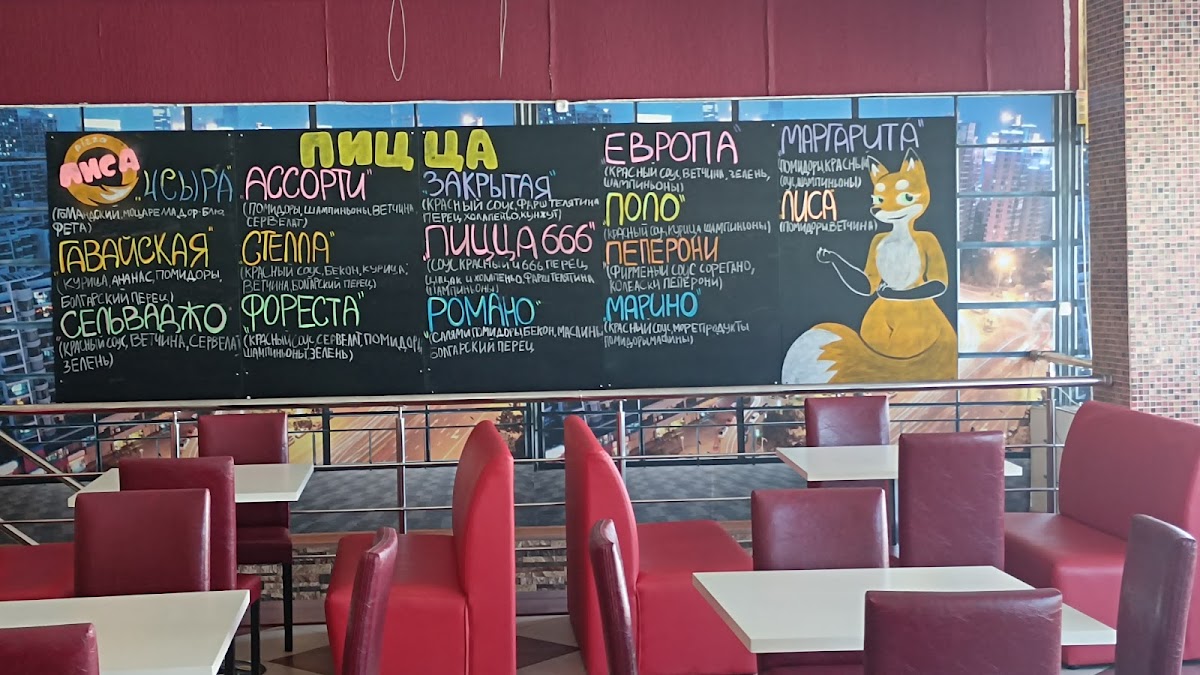 PIZZA
ЛИСА
ПИЦЦА
"4СЫРА"
(ГОЛЛАНДСКИЙ, МОЦАРЕЛЛА, ДОР-БЛЮ,
ФЕТА)
"ГАВАЙСКАЯ"
(КУРИЦА, АНАНАС, ПОМИДОРЫ,
БОЛГАРСКИЙ ПЕРЕЦ)
"СЕЛЬВАДЖО"
(КРАСНЫЙ СОУС, ВЕТЧИНА, СЕРВЕЛАТ,
ЗЕЛЕНЬ)
"АССОРТИ"
(ПОМИДОРЫ, ШАМПИНЬОНЫ, ВЕТЧИНА
СЕРВЕЛАТ)
"СТЕЛЛА"
(КРАСНЫЙ СОУС, БЕКОН, КУРИЦА,
ВЕТЧИНА, БОЛГАРСКИЙ ПЕРЕЦ)
"ФОРЕСТА"
(КРАСНЫЙ СОУС, СЕРВЕЛАТ, ПОМИДОРЫ,
ШАМПИНЬОНЫ, ЗЕЛЕНЬ)
"ЗАКРЫТАЯ"
(КРАСНЫЙ СОУС, ФАРШ ТЕЛЯТИНА
ПЕРЕЦ, ХОЛАПЕНЬО, КУНЖУТ)
"ПИЦЦА 666"
(СОУС КРАСНЫЙ И 666, ПЕРЕЦ
И ХОЛАПЕНЬО, ФАРШ ТЕЛЯТИНА,
ШАМПИНЬОНЫ)
"РОМАНО"
(САЛЯМИ, ПОМИДОРЫ, БЕКОН, МАСЛИНЫ
БОЛГАРСКИЙ ПЕРЕЦ
"ЕВРОПА"
(КРАСНЫЙ СОУС, ВЕТЧИНА, ЗЕЛЕНЬ,
ШАМПИНЬОНЫ)
"ПОЛО"
(КРАСНЫЙ СОУС, КУРИЦА, ШАМПИНЬОНЫ)
"ПЕПЕРОНИ
(ФИРМЕНЫЙ СОУС СОРЕГАНО,
КОЛБАСКИ ПЕПЕРОНИ)
"МАРИНО"
(КРАСНЫЙ СОУС, МОРЕПРОДУКТЫ
ПОМИДОРЫ,
"МАРГАРИТА"
(ПОМИДОРЫ, КРАСНЫЙ
СОУС, ШАМПИНЬОНЫ)
"ЛИСА"
(ПОМИДОРЫ, ВЕТЧИНА)